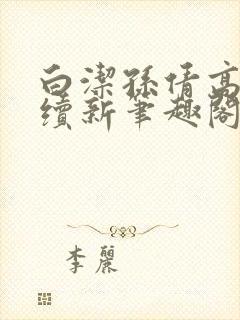 白潔孫倩高
續新筆趣閣
李麗